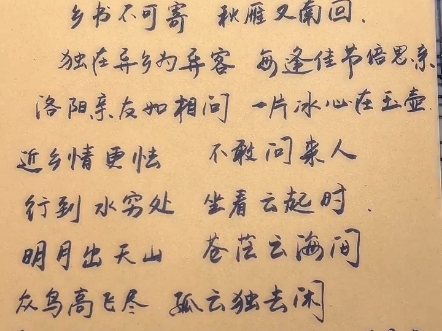 乡书不可寄 秋雁又南回.
独在异乡为异客 每逢佳节倍思亲
洛阳亲友如相问 一片冰心在玉壶.
近乡情更怯 不敢问来人
行到水穷处 坐看云起时.
明月出天山 苍茫云海间
众鸟高飞尽 孤云独去闲